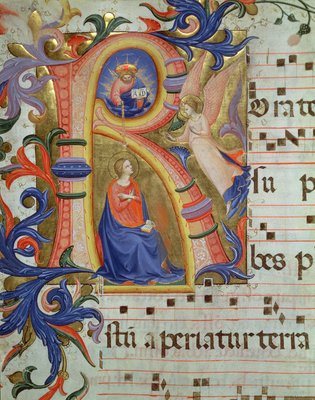 R Orate
su p
bes p
stū aperiatur terra